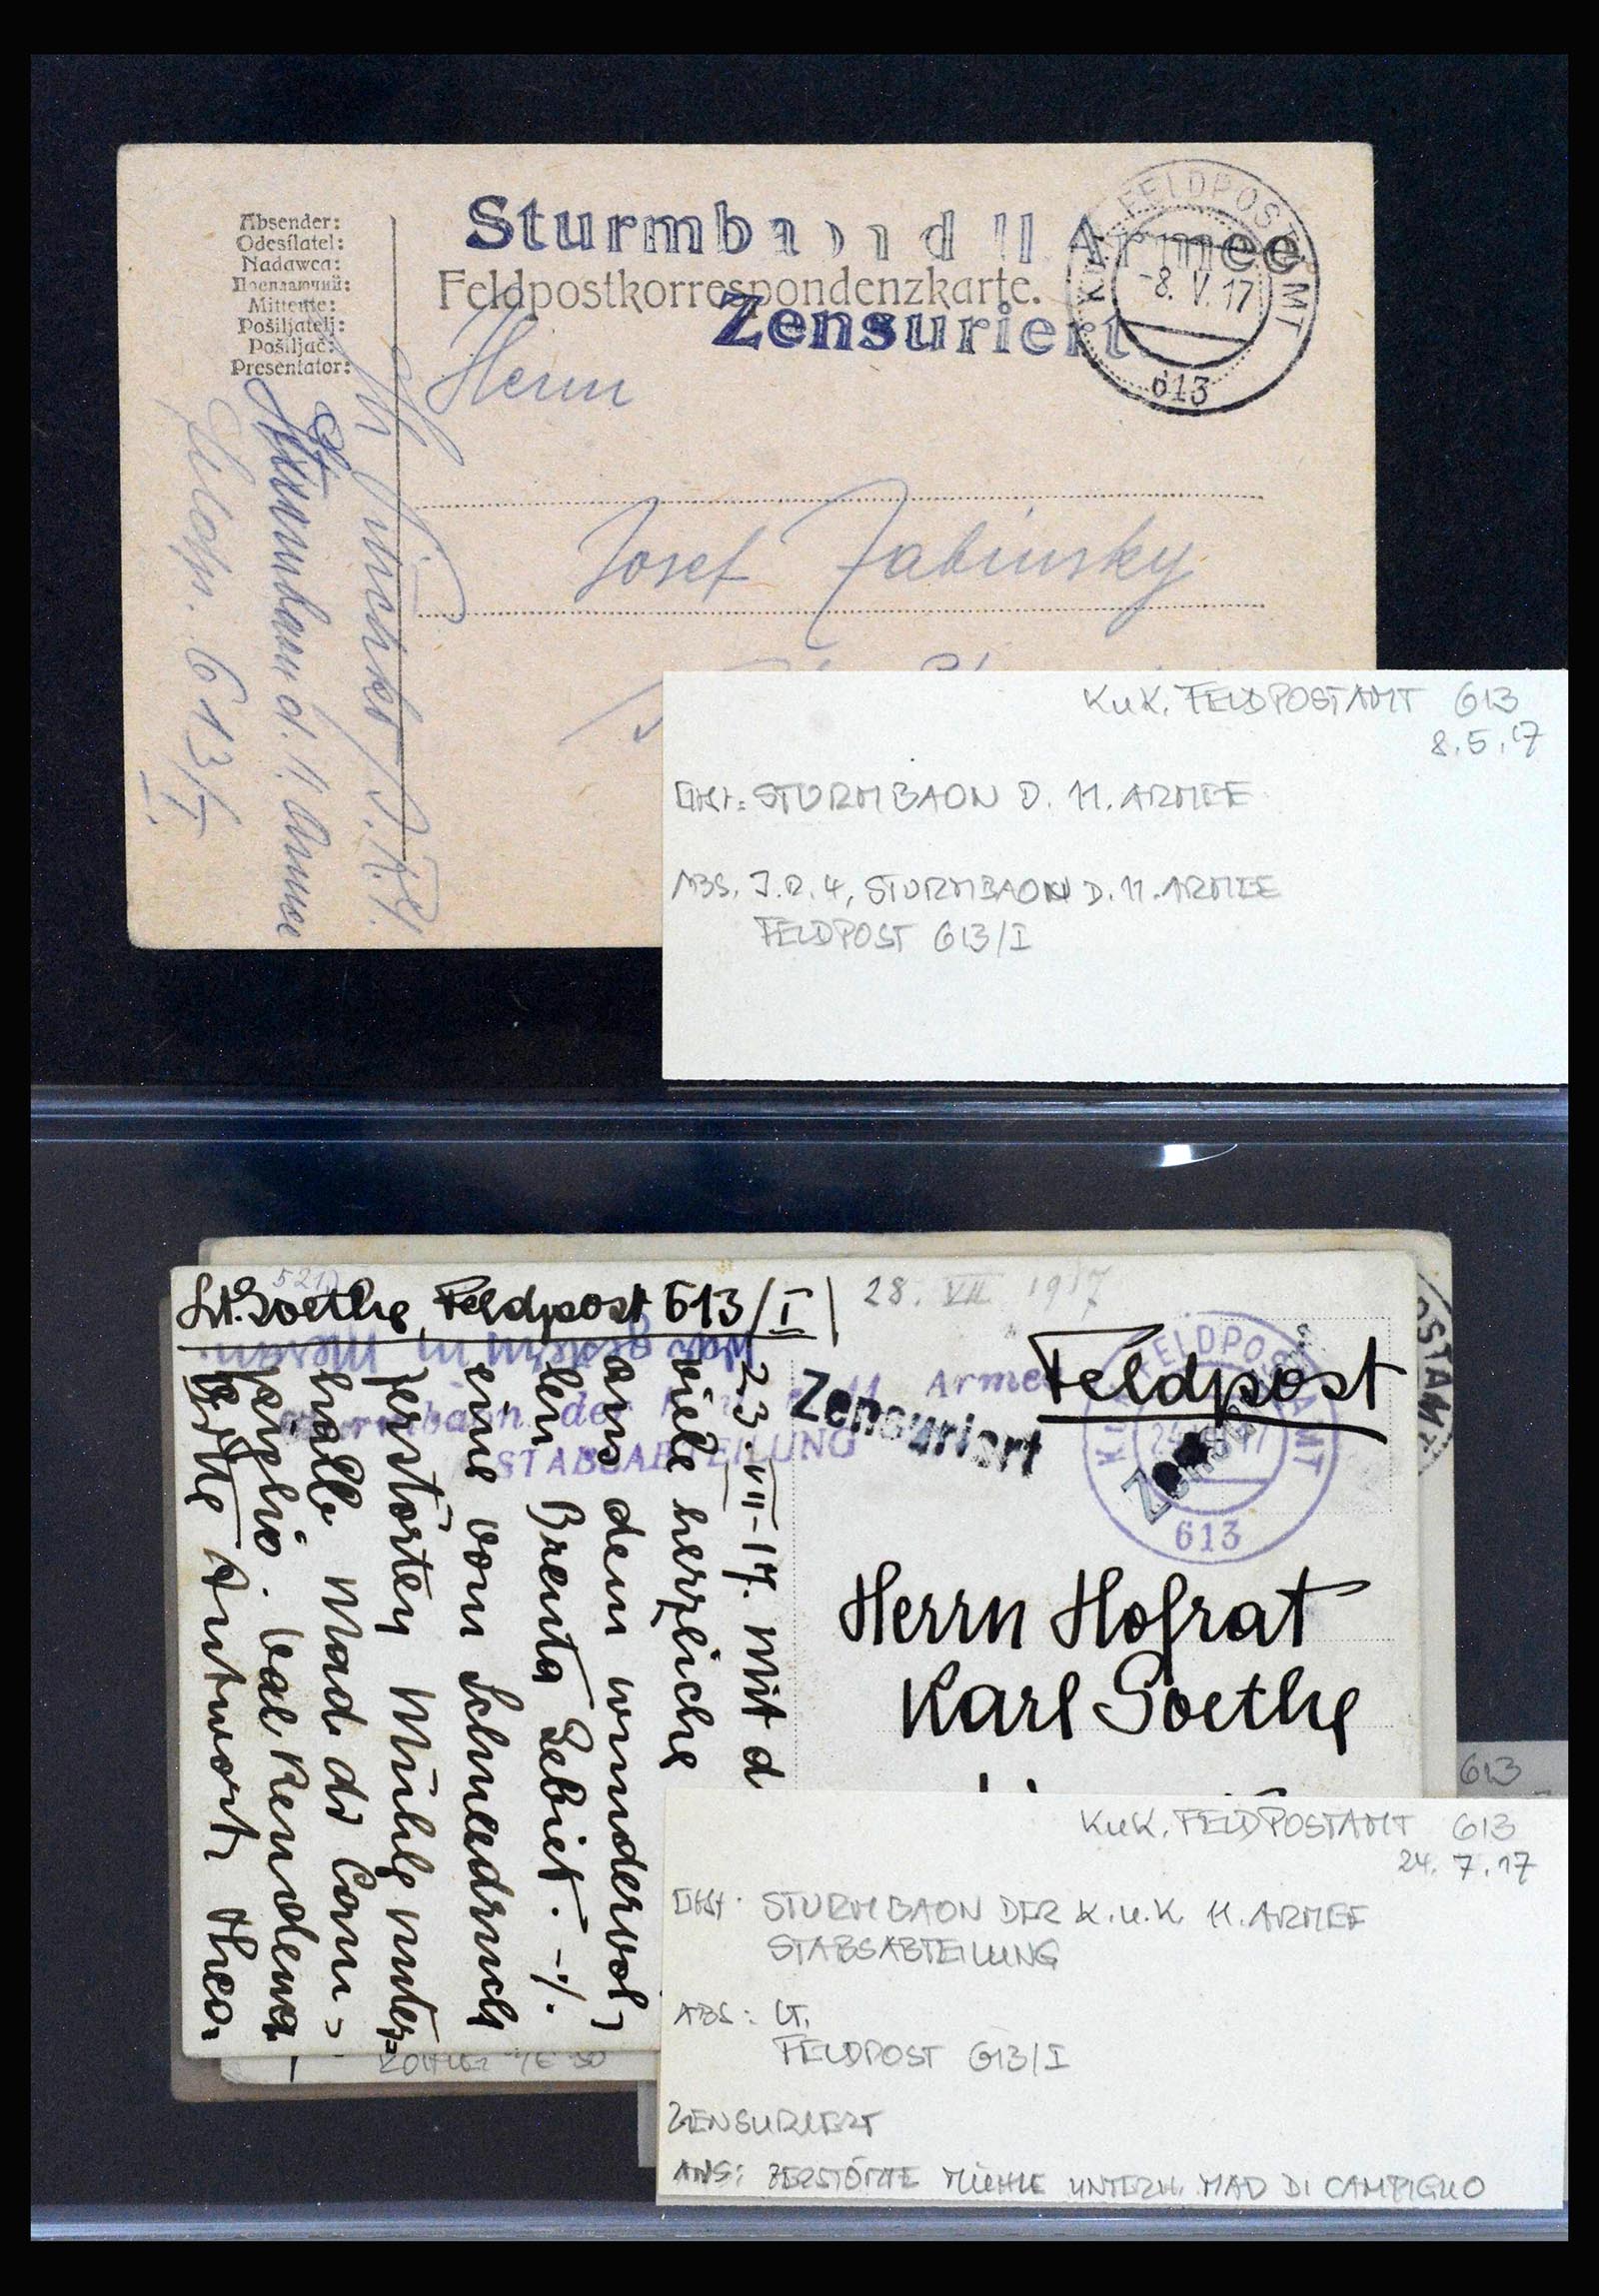 Sturmba on d 11 Armee
Feldpostkorrespondenzkarte.
Zensuriert
K.u.K. FELDPOSTAMT
-8. V. 17
613
Absender:
Odesílatel:
Nadawca:
Посилаючий:
Mittente:
Pošiljatelj:
Pošiljač:
Presentator:
Sturmbaon d. 11 Armee
Feldp. 613/I
Herrn
Josef Jabinsky
K.u.K. FELDPOSTAMT 613
8.5.17
STURMBAON D. 11. ARMEE
ABS. J.R. 4, STURMBAON D. 11. ARMEE
FELDPOST 613/I
521
Lt. Goethe, Feldpost 613/I
28. VII 1917
Feldpost
Zensuriert
Zensuriert
Sturmbaon der K.u.K. 11. Armee
STABSABTEILUNG
FELDPOSTAMT
24. 17
613
OSTAM
23. VII-17. Mit d
viele herzliche
aus dem wundervol,
len Brenta Gebiet. -/.
eine vom Schneedruck
zerstörten Mühle unter=
halb Mad. di Cam=
piglio. Val Rendena
Bitte Antwort, Theo.
Herrn Hofrat
Karl Goethe
613
K.u.K. FELDPOSTAMT 613
24. 7. 17
STURMBAON DER K.u.K. 11. ARMEE
STABSABTEILUNG
ABS: LT.
FELDPOST 613/I
ZENSURIERT
ANS: ZERSTÖRTE MÜHLE UNTERH. MAD DI CAMPIGLIO